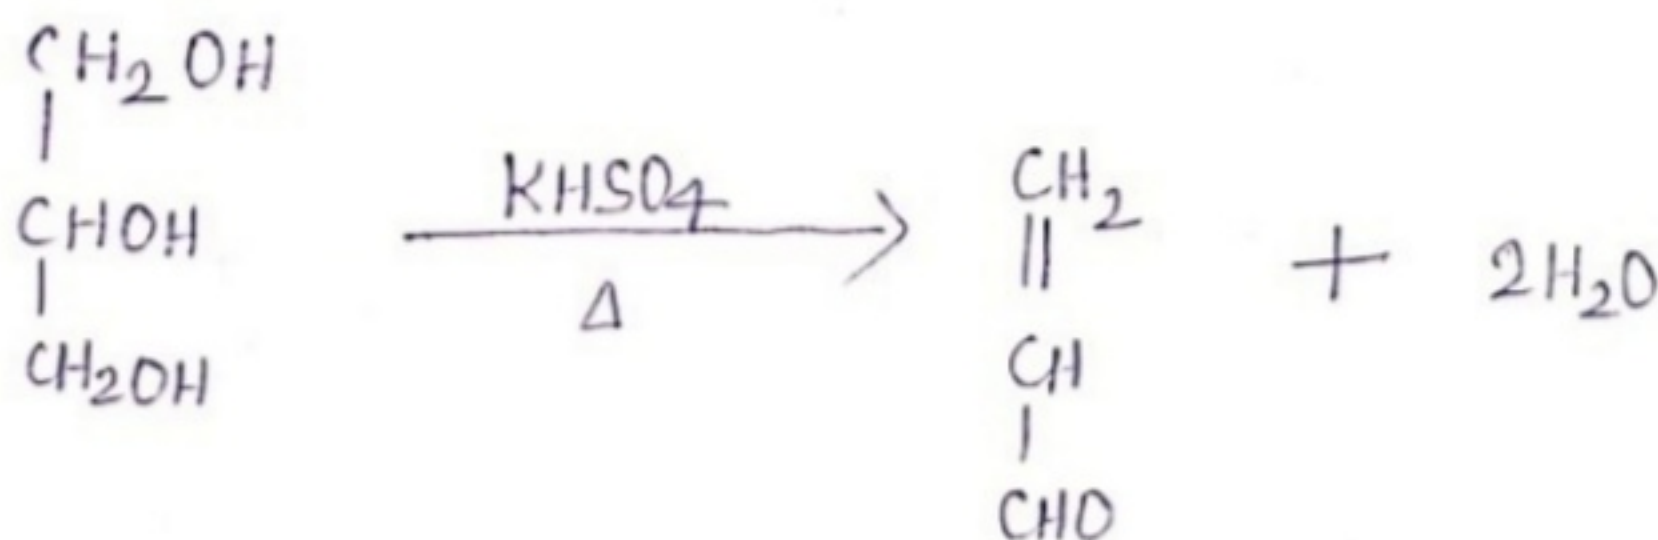 CH₂OH
|
CHOH
|
CH₂OH
KHSO₄
Δ
CH₂
||
CH
|
CHO
+ 2H₂O